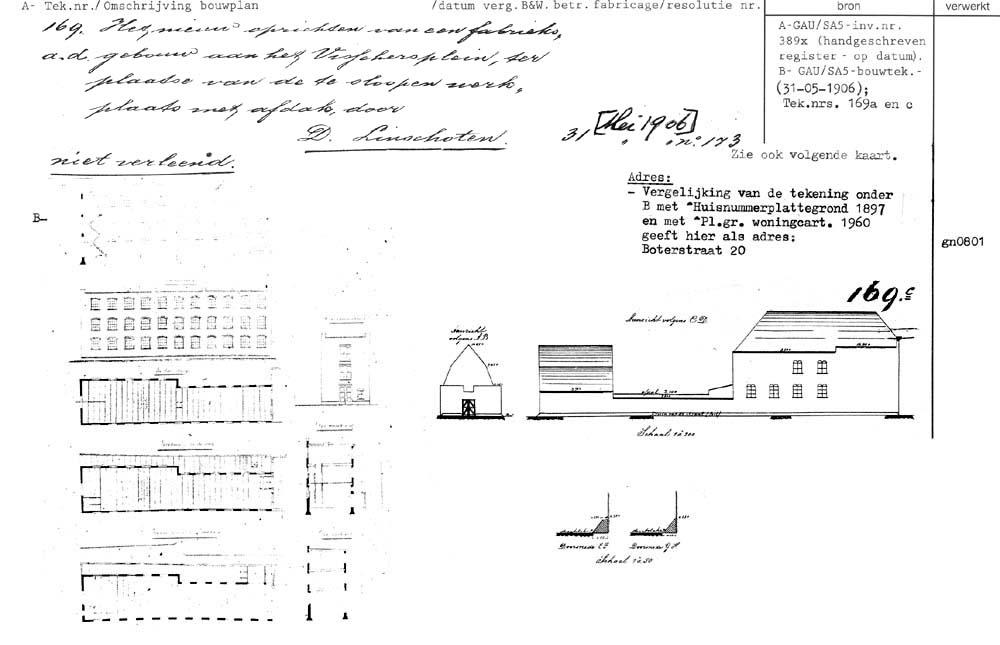 A- Tek.nr./Omschrijving bouwplan /datum verg.B&W. betr. fabricage/resolutie nr. bron verwerkt
169. Het nieuw oprichten van een fabrieks,
a.d. gebouw aan het Visschersplein, ter
plaatse van de te sloopen werk,
plaats met afdak, door
D. Linschoten.
31 [Mei 1906]
" " no. 173
niet verleend.
A-GAU/SA5-inv.nr.
389x (handgeschreven
register - op datum).
B- GAU/SA5-bouwtek.-
(31-05-1906);
Tek.nrs. 169a en c
Zie ook volgende kaart.
Adres:
- Vergelijking van de tekening onder
B met "Huisnummerplattegrond 1897
en met "Pl.gr. woningcart. 1960
geeft hier als adres:
Boterstraat 20
gn0801
B-
169.c
Aanzicht
volgens A.B
Aanzicht volgens C.D.
Schaal 1 à 200
Doorsnede E F
Doorsnede G H
Schaal 1 à 50